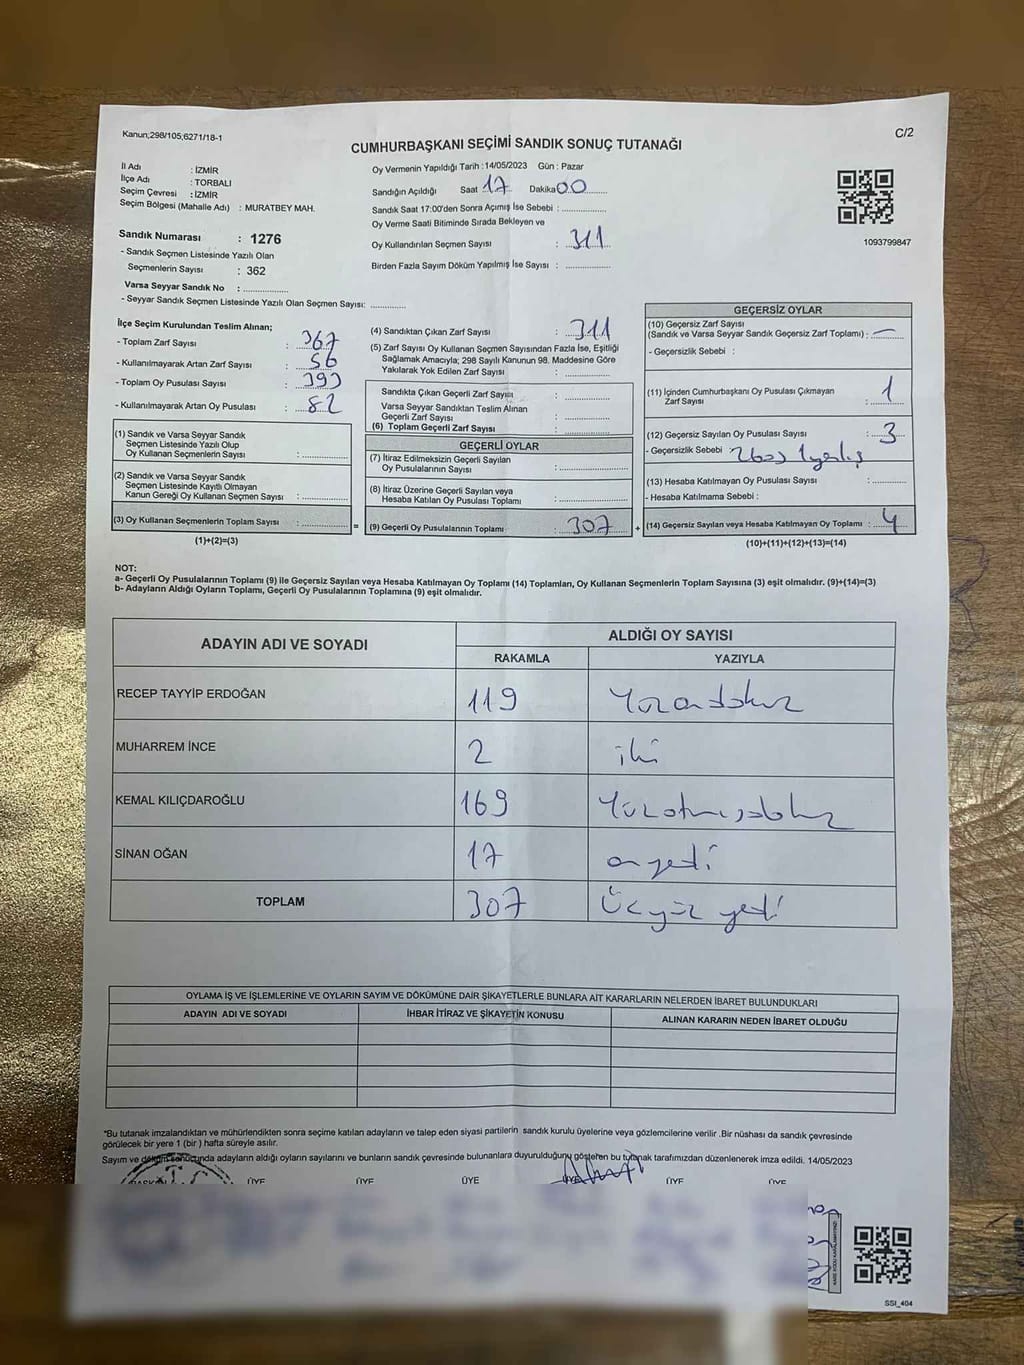 Kanun;298/105;6271/18-1
C/2
CUMHURBAŞKANI SEÇİMİ SANDIK SONUÇ TUTANAĞI
İl Adı : İZMİR
İlçe Adı : TORBALI
Seçim Çevresi : İZMİR
Seçim Bölgesi (Mahalle Adı) : MURATBEY MAH.
Sandık Numarası : 1276
- Sandık Seçmen Listesinde Yazılı Olan
Seçmenlerin Sayısı : 362
Varsa Seyyar Sandık No : ..............
- Seyyar Sandık Seçmen Listesinde Yazılı Olan Seçmen Sayısı: ............
Oy Vermenin Yapıldığı Tarih :14/05/2023 Gün : Pazar
Sandığın Açıldığı Saat 17 Dakika 00
Sandık Saat 17:00'den Sonra Açımış İse Sebebi : ..............
Oy Verme Saati Bitiminde Sırada Bekleyen ve
Oy Kullandırılan Seçmen Sayısı : 311
Birden Fazla Sayım Döküm Yapılmış İse Sayısı : ..............
1093799847
İlçe Seçim Kurulundan Teslim Alınan;
- Toplam Zarf Sayısı : 367
- Kullanılmayarak Artan Zarf Sayısı : 56
- Toplam Oy Pusulası Sayısı : 393
- Kullanılmayarak Artan Oy Pusulası : 82
(1) Sandık ve Varsa Seyyar Sandık
Seçmen Listesinde Yazılı Olup
Oy Kullanan Seçmenlerin Sayısı : ..............
(2) Sandık ve Varsa Seyyar Sandık
Seçmen Listesinde Kayıtlı Olmayan
Kanun Gereği Oy Kullanan Seçmen Sayısı : ..............
(3) Oy Kullanan Seçmenlerin Toplam Sayısı : ..............
(1)+(2)=(3)
(4) Sandıktan Çıkan Zarf Sayısı : 311
(5) Zarf Sayısı Oy Kullanan Seçmen Sayısından Fazla İse, Eşitliği
Sağlamak Amacıyla; 298 Sayılı Kanunun 98. Maddesine Göre
Yakılarak Yok Edilen Zarf Sayısı : ..............
Sandıkta Çıkan Geçerli Zarf Sayısı : ..............
Varsa Seyyar Sandıktan Teslim Alınan
Geçerli Zarf Sayısı : ..............
(6) Toplam Geçerli Zarf Sayısı : ..............
GEÇERLİ OYLAR
(7) İtiraz Edilmeksizin Geçerli Sayılan
Oy Pusulalarının Sayısı : ..............
(8) İtiraz Üzerine Geçerli Sayılan veya
Hesaba Katılan Oy Pusulası Toplamı : ..............
= (9) Geçerli Oy Pusulalarının Toplamı : 307 +
GEÇERSİZ OYLAR
(10) Geçersiz Zarf Sayısı
(Sandık ve Varsa Seyyar Sandık Geçersiz Zarf Toplamı) : —
- Geçersizlik Sebebi :
(11) İçinden Cumhurbaşkanı Oy Pusulası Çıkmayan
Zarf Sayısı : 1
(12) Geçersiz Sayılan Oy Pusulası Sayısı : 3
- Geçersizlik Sebebi
(13) Hesaba Katılmayan Oy Pusulası Sayısı : ..............
- Hesaba Katılmama Sebebi :
(14) Geçersiz Sayılan veya Hesaba Katılmayan Oy Toplamı : 4
(10)+(11)+(12)+(13)=(14)
NOT:
a- Geçerli Oy Pusulalarının Toplamı (9) ile Geçersiz Sayılan veya Hesaba Katılmayan Oy Toplamı (14) Toplamları, Oy Kullanan Seçmenlerin Toplam Sayısına (3) eşit olmalıdır. (9)+(14)=(3)
b- Adayların Aldığı Oyların Toplamı, Geçerli Oy Pusulalarının Toplamına (9) eşit olmalıdır.
ADAYIN ADI VE SOYADI
ALDIĞI OY SAYISI
RAKAMLA YAZIYLA
RECEP TAYYİP ERDOĞAN 119 Yüzondokuz
MUHARREM İNCE 2 iki
KEMAL KILIÇDAROĞLU 169 Yüzatmışdokuz
SİNAN OĞAN 17 onyedi
TOPLAM 307 Üçyüz yedi
OYLAMA İŞ VE İŞLEMLERİNE VE OYLARIN SAYIM VE DÖKÜMÜNE DAİR ŞİKAYETLERLE BUNLARA AİT KARARLARIN NELERDEN İBARET BULUNDUKLARI
ADAYIN ADI VE SOYADI İHBAR İTİRAZ VE ŞİKAYETİN KONUSU ALINAN KARARIN NEDEN İBARET OLDUĞU
*Bu tutanak imzalandıktan ve mühürlendikten sonra seçime katılan adayların ve talep eden siyasi partilerin sandık kurulu üyelerine veya gözlemcilerine verilir .Bir nüshası da sandık çevresinde
görülecek bir yere 1 (bir ) hafta süreyle asılır.
Sayım ve döküm sonucunda adayların aldığı oyların sayılarını ve bunların sandık çevresinde bulunanlara duyurulduğunu gösteren bu tutanak tarafımızdan düzenlenerek imza edildi. 14/05/2023
BAŞKAN ÜYE ÜYE ÜYE ÜYE ÜYE ÜYE
SSI_404